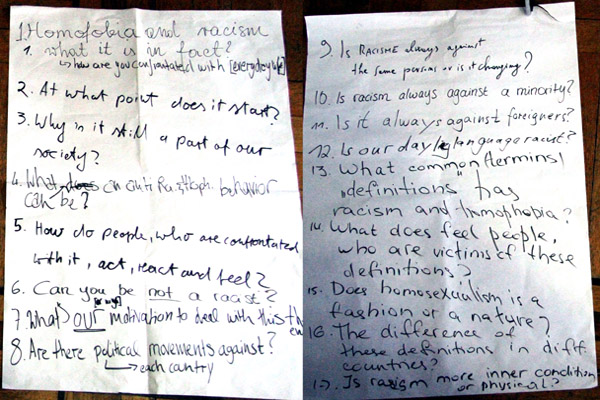 1. Homofobia and racism
1. What it is in fact?
↳ how are you confrontated with [everyday life]
2. At what point does it start?
3. Why is it still a part of our
society?
4. What can anti behavior
can be?
5. How do people, who are confrontated
with it, act, react and feel?
6. Can you be not a racist?
7. What's our motivation to deal with this
8. Are there political movements against?
↳ each country
9. Is RACISME always against
the same persons or is it changing?
10. Is racism always against a minority?
11. Is it always against foreigners?
12. Is our day language racist?
13. What common (termins)
"definitions" has
racism and homophobia?
14. What does feel people,
who are victims of these
definitions?
15. Does homosexualism is a
fashion or a nature?
16. The difference of
these definitions in diff.
countries?
17. Is rasism more inner condition
or physical?